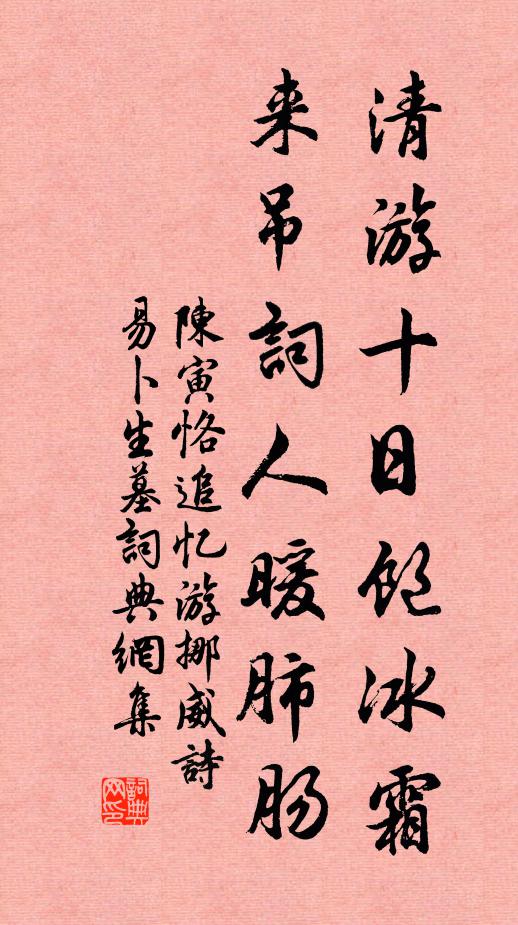 清游十日饱冰霜
来吊詞人暖肺肠
陳寅恪追忆游挪威詩
易卜生墓詞典網集
詞典
网印